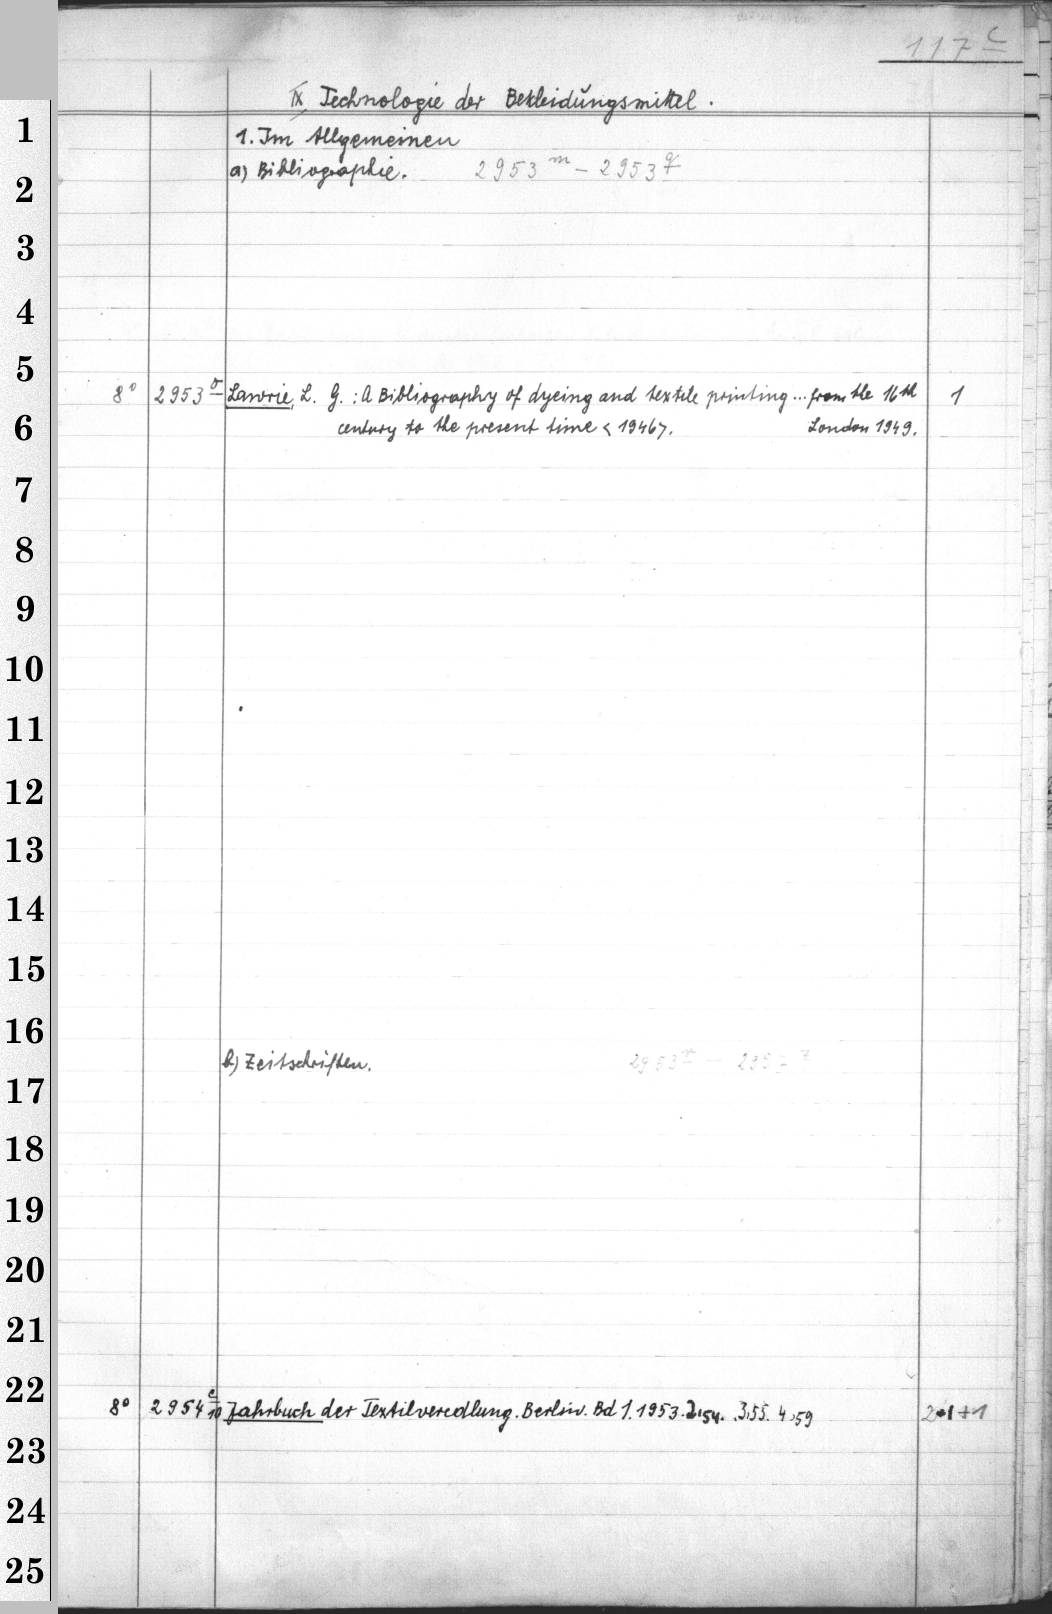 117 c
IX, Technologie der Bekleidungsmittel.
1
1. Im Allgemeinen
2
a) Bibliographie. 2953 m - 2953 q
3
4
5
8° 2953 o Lawrie, L. G.: A Bibliography of dyeing and textile printing... from the 16th 1
6
century to the present time <1946>. London 1949.
7
8
9
10
11
12
13
14
15
16
b) Zeitschriften. 2953 - 295 z
17
18
19
20
21
22
8° 2954 c/10 Jahrbuch der Textilveredlung. Berlin. Bd 1.1953. 2,54. 3,55. 4,59 2+1+1
23
24
25